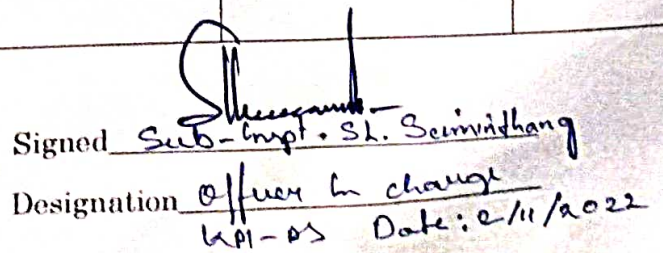 Signed Sub-Inspt. SL. Seiminthang
Designation Officer In charge
KPI-PS Date: 2/11/2022